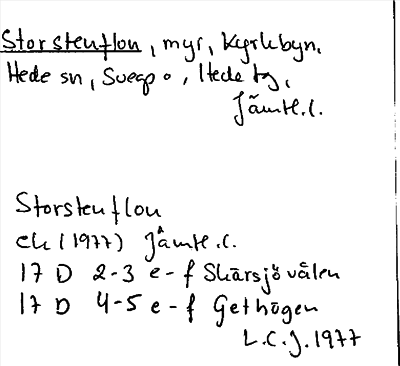 Storstenflon, myr, Kyrkbyn,
Hede sn, Sveg po, Hede tg,
Jämtl. l.
Storstenflon
ek (1977) Jämtl. l.
17 D 2-3 e-f Skärsjövålen
17 D 4-5 e-f Gethögen
L.C.J. 1977